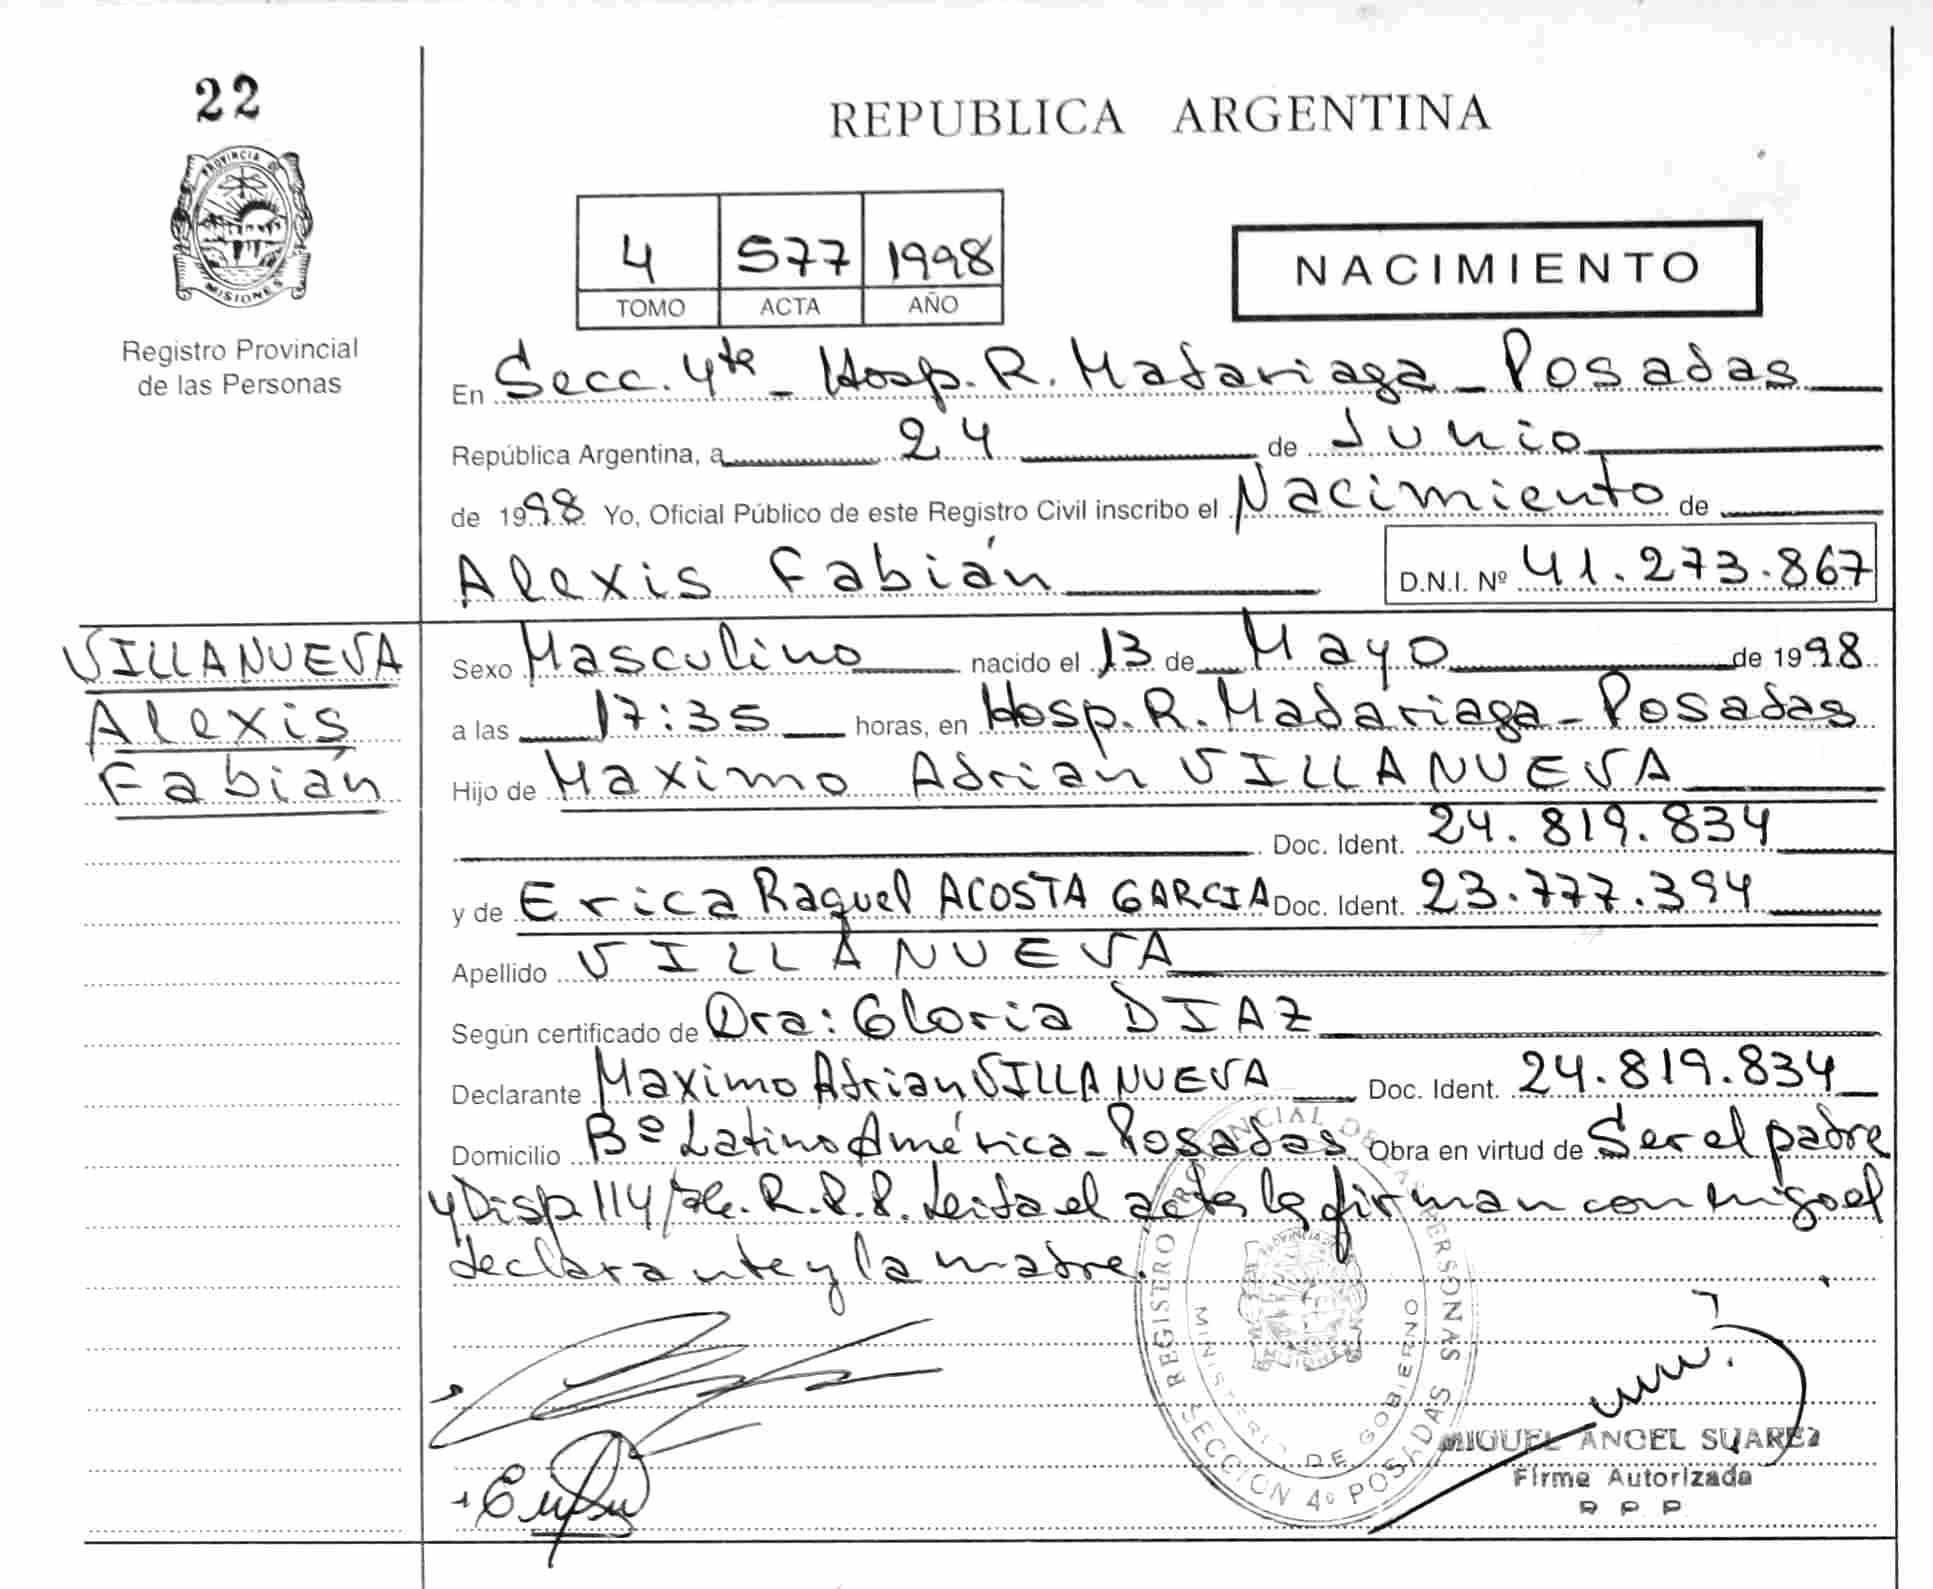 22
PROVINCIA DE
MISIONES
Registro Provincial
de las Personas
REPUBLICA ARGENTINA
4 577 1998
TOMO ACTA AÑO
NACIMIENTO
En Secc. 4ta - Hosp. R. Madariaga - Posadas
República Argentina, a 24 de Junio
de 1998 Yo, Oficial Público de este Registro Civil inscribo el Nacimiento de
Alexis Fabián D.N.I. Nº 41.273.867
VILLANUEVA
Alexis
Fabián
Sexo Masculino nacido el 13 de Mayo de 1998
a las 17:35 horas, en Hosp. R. Madariaga - Posadas
Hijo de Maximo Adrian VILLANUEVA
Doc. Ident. 24.819.834
y de Erica Raquel ACOSTA GARCIA Doc. Ident. 23.777.394
Apellido VILLANUEVA
Según certificado de Dra: Gloria DIAZ
Declarante Maximo Adrian VILLANUEVA Doc. Ident. 24.819.834
Domicilio Bº Latino América - Posadas Obra en virtud de Ser el padre
y Disp. 114 R.P.P. Leida el acta la firman conmigo el
declarante y la madre.
REGISTRO PROVINCIAL DE LAS PERSONAS
MINISTERIO DE GOBIERNO
SECCION 4º POSADAS
MIGUEL ANGEL SUAREZ
Firma Autorizada
R P P